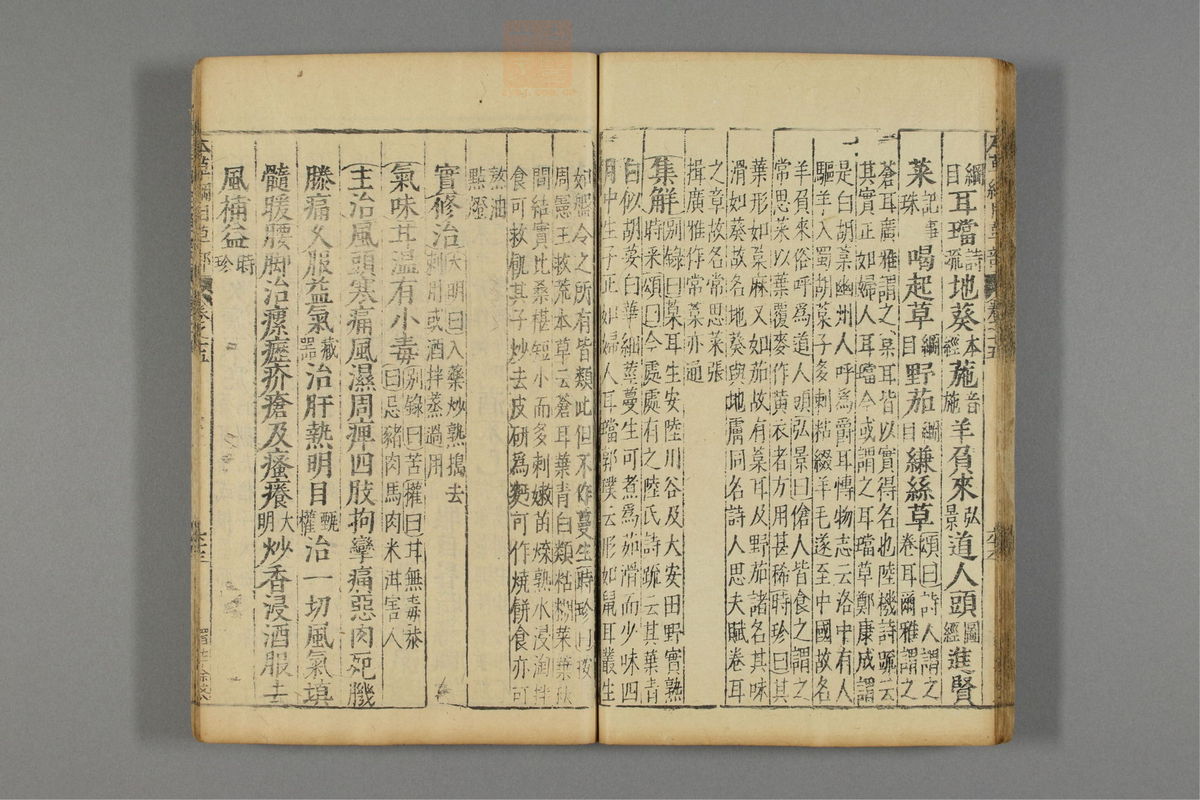 本草綱目草部 卷之十五
綱目耳璫詩疏地葵本經葹音施羊負來弘景道人頭圖經進賢
菜記事珠喝起草綱目野茄綱目縑絲草頌曰詩人謂之卷耳爾雅謂之
蒼耳廣雅謂之枲耳皆以實得名也陸機詩疏云
其實正如婦人耳璫今或謂之耳璫草鄭康成謂
是白胡荽幽州人呼爲爵耳博物志云洛中有人
驅羊入蜀胡枲子多刺粘綴羊毛遂至中國故名
羊負來俗呼爲道人頭弘景曰傖人皆食之謂之
常思菜以葉覆麥作黄衣者方用甚稀時珍曰其
葉形如枲麻又如茄故有枲耳及野茄諸名其味
滑如葵故名地葵與地膚同名詩人思夫賦卷耳
之章故名常思菜張
揖廣雅作常枲亦通
集解別錄曰枲耳生安陸川谷及大安田野實熟
時采頌曰今處處有之陸氏詩疏云其葉青
白似胡荽白華細莖蔓生可煮爲茹滑而少味四
月中生子正如婦人耳璫郭璞云形如鼠耳叢生
如盤今之所有皆類此但不作蔓生時珍曰按
周憲王救荒本草云蒼耳葉青白類粘糊菜葉秋
間結實比桑椹短小而多刺嫩苗煠熟水浸淘拌
食可救饑其子炒去皮研爲麪可作燒餅食亦可
熬油
點燈
實修治大明曰入藥炒熟搗去刺用或酒拌蒸過用
氣味甘溫有小毒別錄曰苦權曰甘無毒恭曰忌豬肉馬肉米泔害人
主治風頭寒痛風濕周痺四肢拘攣痛惡肉死肌
膝痛久服益氣藏器治肝熱明目甄權治一切風氣填
髓暖腰脚治瘰癧疥瘡及瘙癢大明炒香浸酒服去
風補益時珍
本草綱目草部 卷之十五